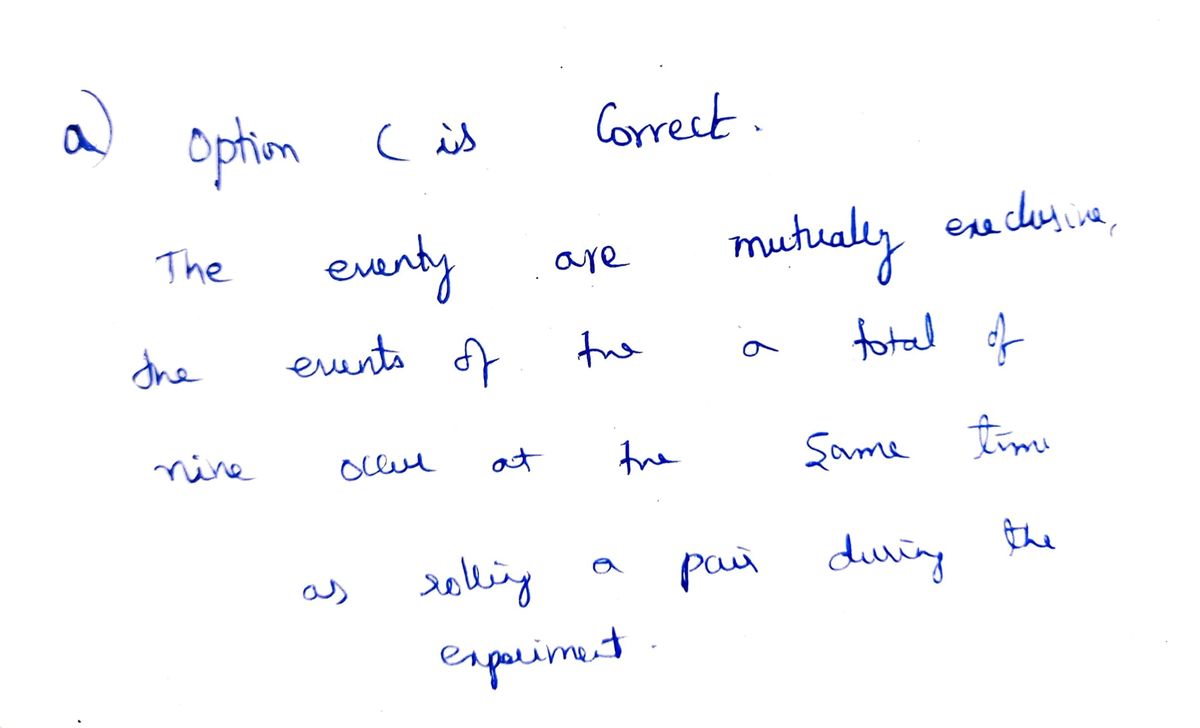 a) Option C is Correct.
The eventy are mutualey execlusive,
the events of the a total of
nine occur at the Same time
as rolling a pair during the
experiment.